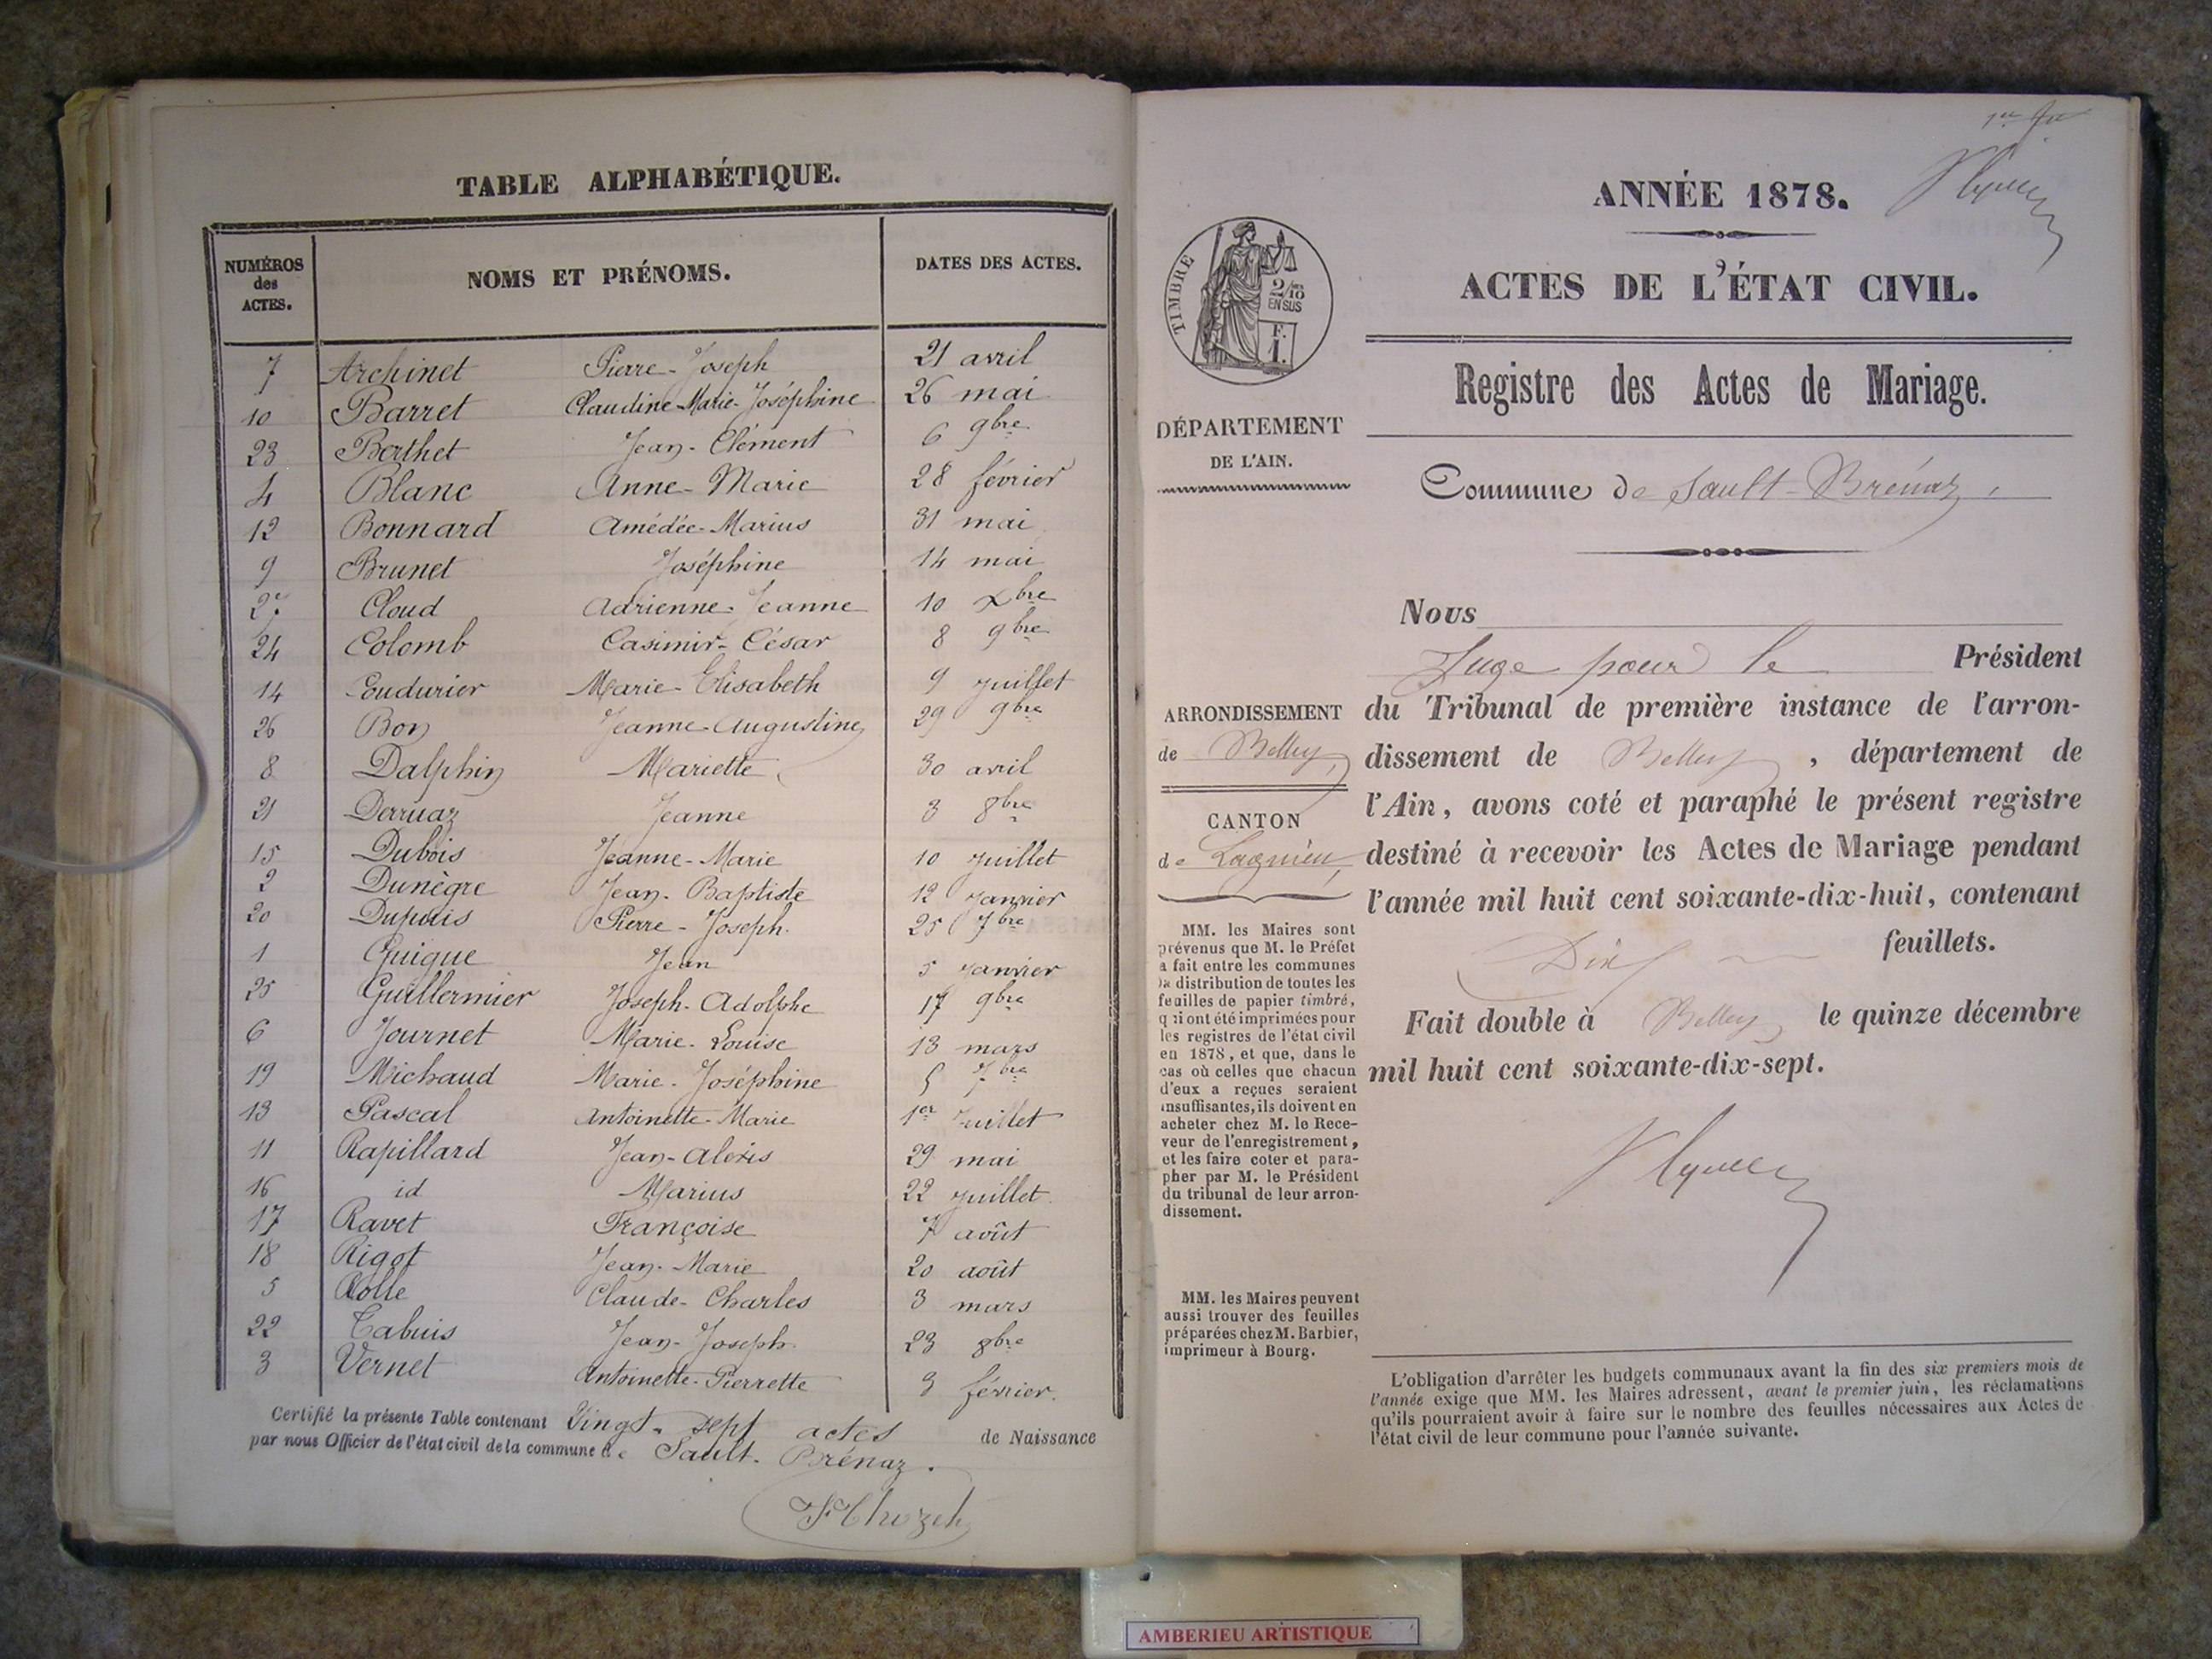 TABLE ALPHABÉTIQUE.
NUMÉROS des ACTES. NOMS ET PRÉNOMS. DATES DES ACTES.
7 Archinet Pierre-Joseph 21 avril
10 Barret Claudine-Marie-Joséphine 26 mai
23 Berthet Jean-Clément 6 9bre
4 Blanc Anne-Marie 28 février
12 Bonnard Amédée-Marius 31 mai
9 Brunet Joséphine 14 mai
27 Cloud Adrienne-Jeanne 10 Xbre
24 Colomb Casimir-César 8 9bre
14 Coudurier Marie-Elisabeth 9 juillet
26 Bon Jeanne-Augustine 29 9bre
8 Dalphin Mariette 30 avril
21 Derruaz Jeanne 3 8bre
15 Dubois Jeanne-Marie 10 juillet
2 Dunègre Jean-Baptiste 12 janvier
20 Dupuis Pierre-Joseph. 25 7bre
1 Guigue Jean 5 janvier
25 Guillermier Joseph-Adolphe 17 9bre
6 Journet Marie-Louise 13 mars
19 Michaud Marie-Joséphine 5 7bre
13 Pascal Antoinette-Marie 1er Juillet
11 Rapillard Jean-Alexis 29 mai
16 id Marius 22 juillet
17 Ravet Françoise 7 août
18 Rigot Jean-Marie 20 août
5 Rolle Claude-Charles 3 mars
22 Tabuis Jean-Joseph 23 8bre
3 Vernet Antoinette-Pierrette 3 février.
Certifié la présente Table contenant Vingt-sept actes de Naissance
par nous Officier de l'état civil de la commune de Sault-Brénaz.
1er
ANNÉE 1878.
ACTES DE L'ÉTAT CIVIL.
Registre des Actes de Mariage.
Commune de Sault-Brénaz,
TIMBRE
2/10
EN SUS
F.
1.
DÉPARTEMENT
DE L'AIN.
ARRONDISSEMENT
de Belley,
CANTON
de Lagnieu,
MM. les Maires sont
prévenus que M. le Préfet
a fait entre les communes
la distribution de toutes les
feuilles de papier timbré,
qui ont été imprimées pour
les registres de l'état civil
en 1878, et que, dans le
cas où celles que chacun
d'eux a reçues seraient
insuffisantes, ils doivent en
acheter chez M. le Rece-
veur de l'enregistrement,
et les faire coter et para-
pher par M. le Président
du tribunal de leur arron-
dissement.
MM. les Maires peuvent
aussi trouver des feuilles
préparées chez M. Barbier,
imprimeur à Bourg.
Nous
Juge pour le Président
du Tribunal de première instance de l'arron-
dissement de Belley, département de
l'Ain, avons coté et paraphé le présent registre
destiné à recevoir les Actes de Mariage pendant
l'année mil huit cent soixante-dix-huit, contenant
Dix feuillets.
Fait double à Belley le quinze décembre
mil huit cent soixante-dix-sept.
L'obligation d'arrêter les budgets communaux avant la fin des six premiers mois de
l'année exige que MM. les Maires adressent, avant le premier juin, les réclamations
qu'ils pourraient avoir à faire sur le nombre des feuilles nécessaires aux Actes de
l'état civil de leur commune pour l'année suivante.
AMBERIEU ARTISTIQUE